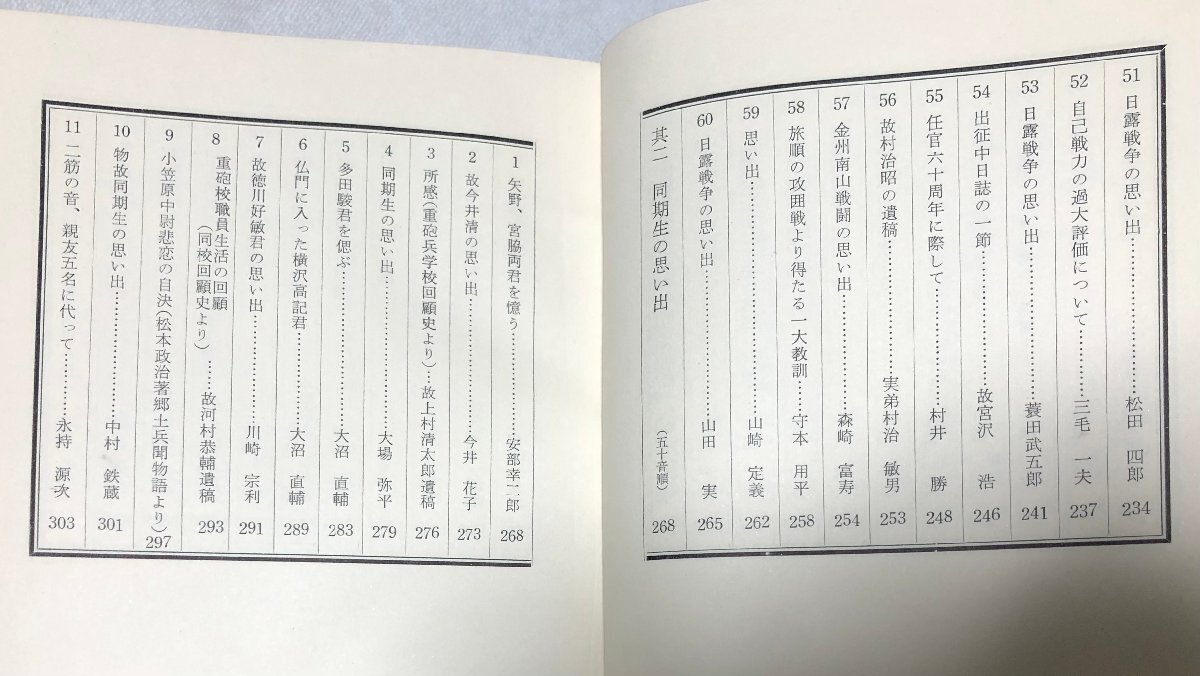 51 日露戦争の思い出……………松田 四郎 234
52 自己戦力の過大評価について………三毛 一夫 237
53 日露戦争の思い出……………蓑田武五郎 241
54 出征中日誌の一節……………故宮沢 浩 246
55 任官六十周年に際して……………村井 勝 248
56 故村治昭の遺稿……………実弟村治 敏男 253
57 金州南山戦闘の思い出……………森崎 富寿 254
58 旅順の攻囲戦より得たる一大教訓……守本 用平 258
59 思い出……………山崎 定義 262
60 日露戦争の思い出……………山田 実 265
其二 同期生の思い出 (五十音順) 268
1 矢野、宮脇両君を憶う……………安部幸二郎 268
2 故今井清の思い出……………今井 花子 273
3 所感(重砲兵学校回顧史より)…故上村清太郎遺稿 276
4 同期生の思い出……………大場 弥平 279
5 多田駿君を偲ぶ……………大沼 直輔 283
6 仏門に入った横沢高記君……………大沼 直輔 289
7 故徳川好敏君の思い出……………川崎 宗利 291
8 重砲校職員生活の回顧
(同校回顧史より)……故河村恭輔遺稿 293
9 小笠原中尉悲恋の自決(松本政治著郷土兵聞物語より) 297
10 物故同期生の思い出……………中村 鉄蔵 301
11 二筋の音、親友五名に代って……………永持 源次 303